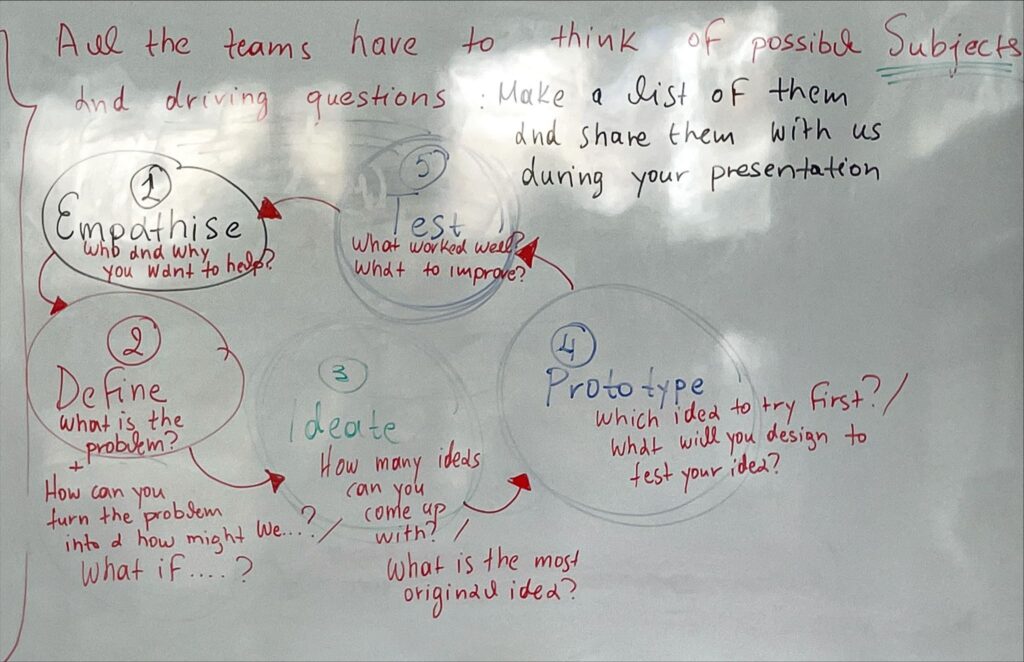 All the teams have to think of possible Subjects
and driving questions : Make a list of them
and share them with us
during your presentation
1
Empathise
Who and why
you want to help?
5
Test
What worked well?
What to improve?
2
Define
What is the
problem?
+
How can you
turn the problem
into a how might we....? /
What if ....?
3
Ideate
How many ideas
can you
come up
with? /
What is the most
original idea?
4
Prototype
Which idea to try first? /
What will you design to
test your idea?